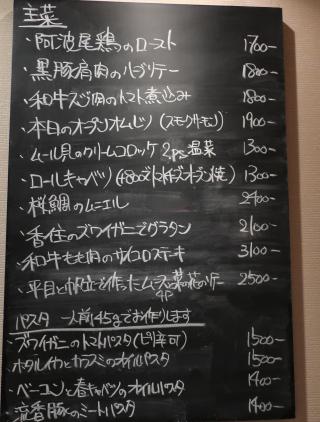 主菜
・阿波尾鶏のロースト 1700-
・黒豚肩肉のハーブソテー 1800-
・和牛スジ肉のトマト煮込み 1800-
・本日のオープンオムレツ (スモークサーモン) 1900-
・ムール貝のクリームコロッケ 2Ps 温菜 1300-
・ロールキャベツ 1300-
・桜鯛のムニエル 2400-
・香住のズワイガニでグラタン 2100-
・和牛もも肉のサイコロステーキ 3100-
・平目と帆立で作ったムース 菜の花のソテー 2500-
パスタ 一人前145gでお作りします
・ズワイガニのトマトパスタ(ピリ辛可) 1500-
・ホタルイカとカラスミのオイルパスタ 1500-
・ベーコンと春キャベツのオイルパスタ 1400-
・流香豚のミートパスタ 1400-